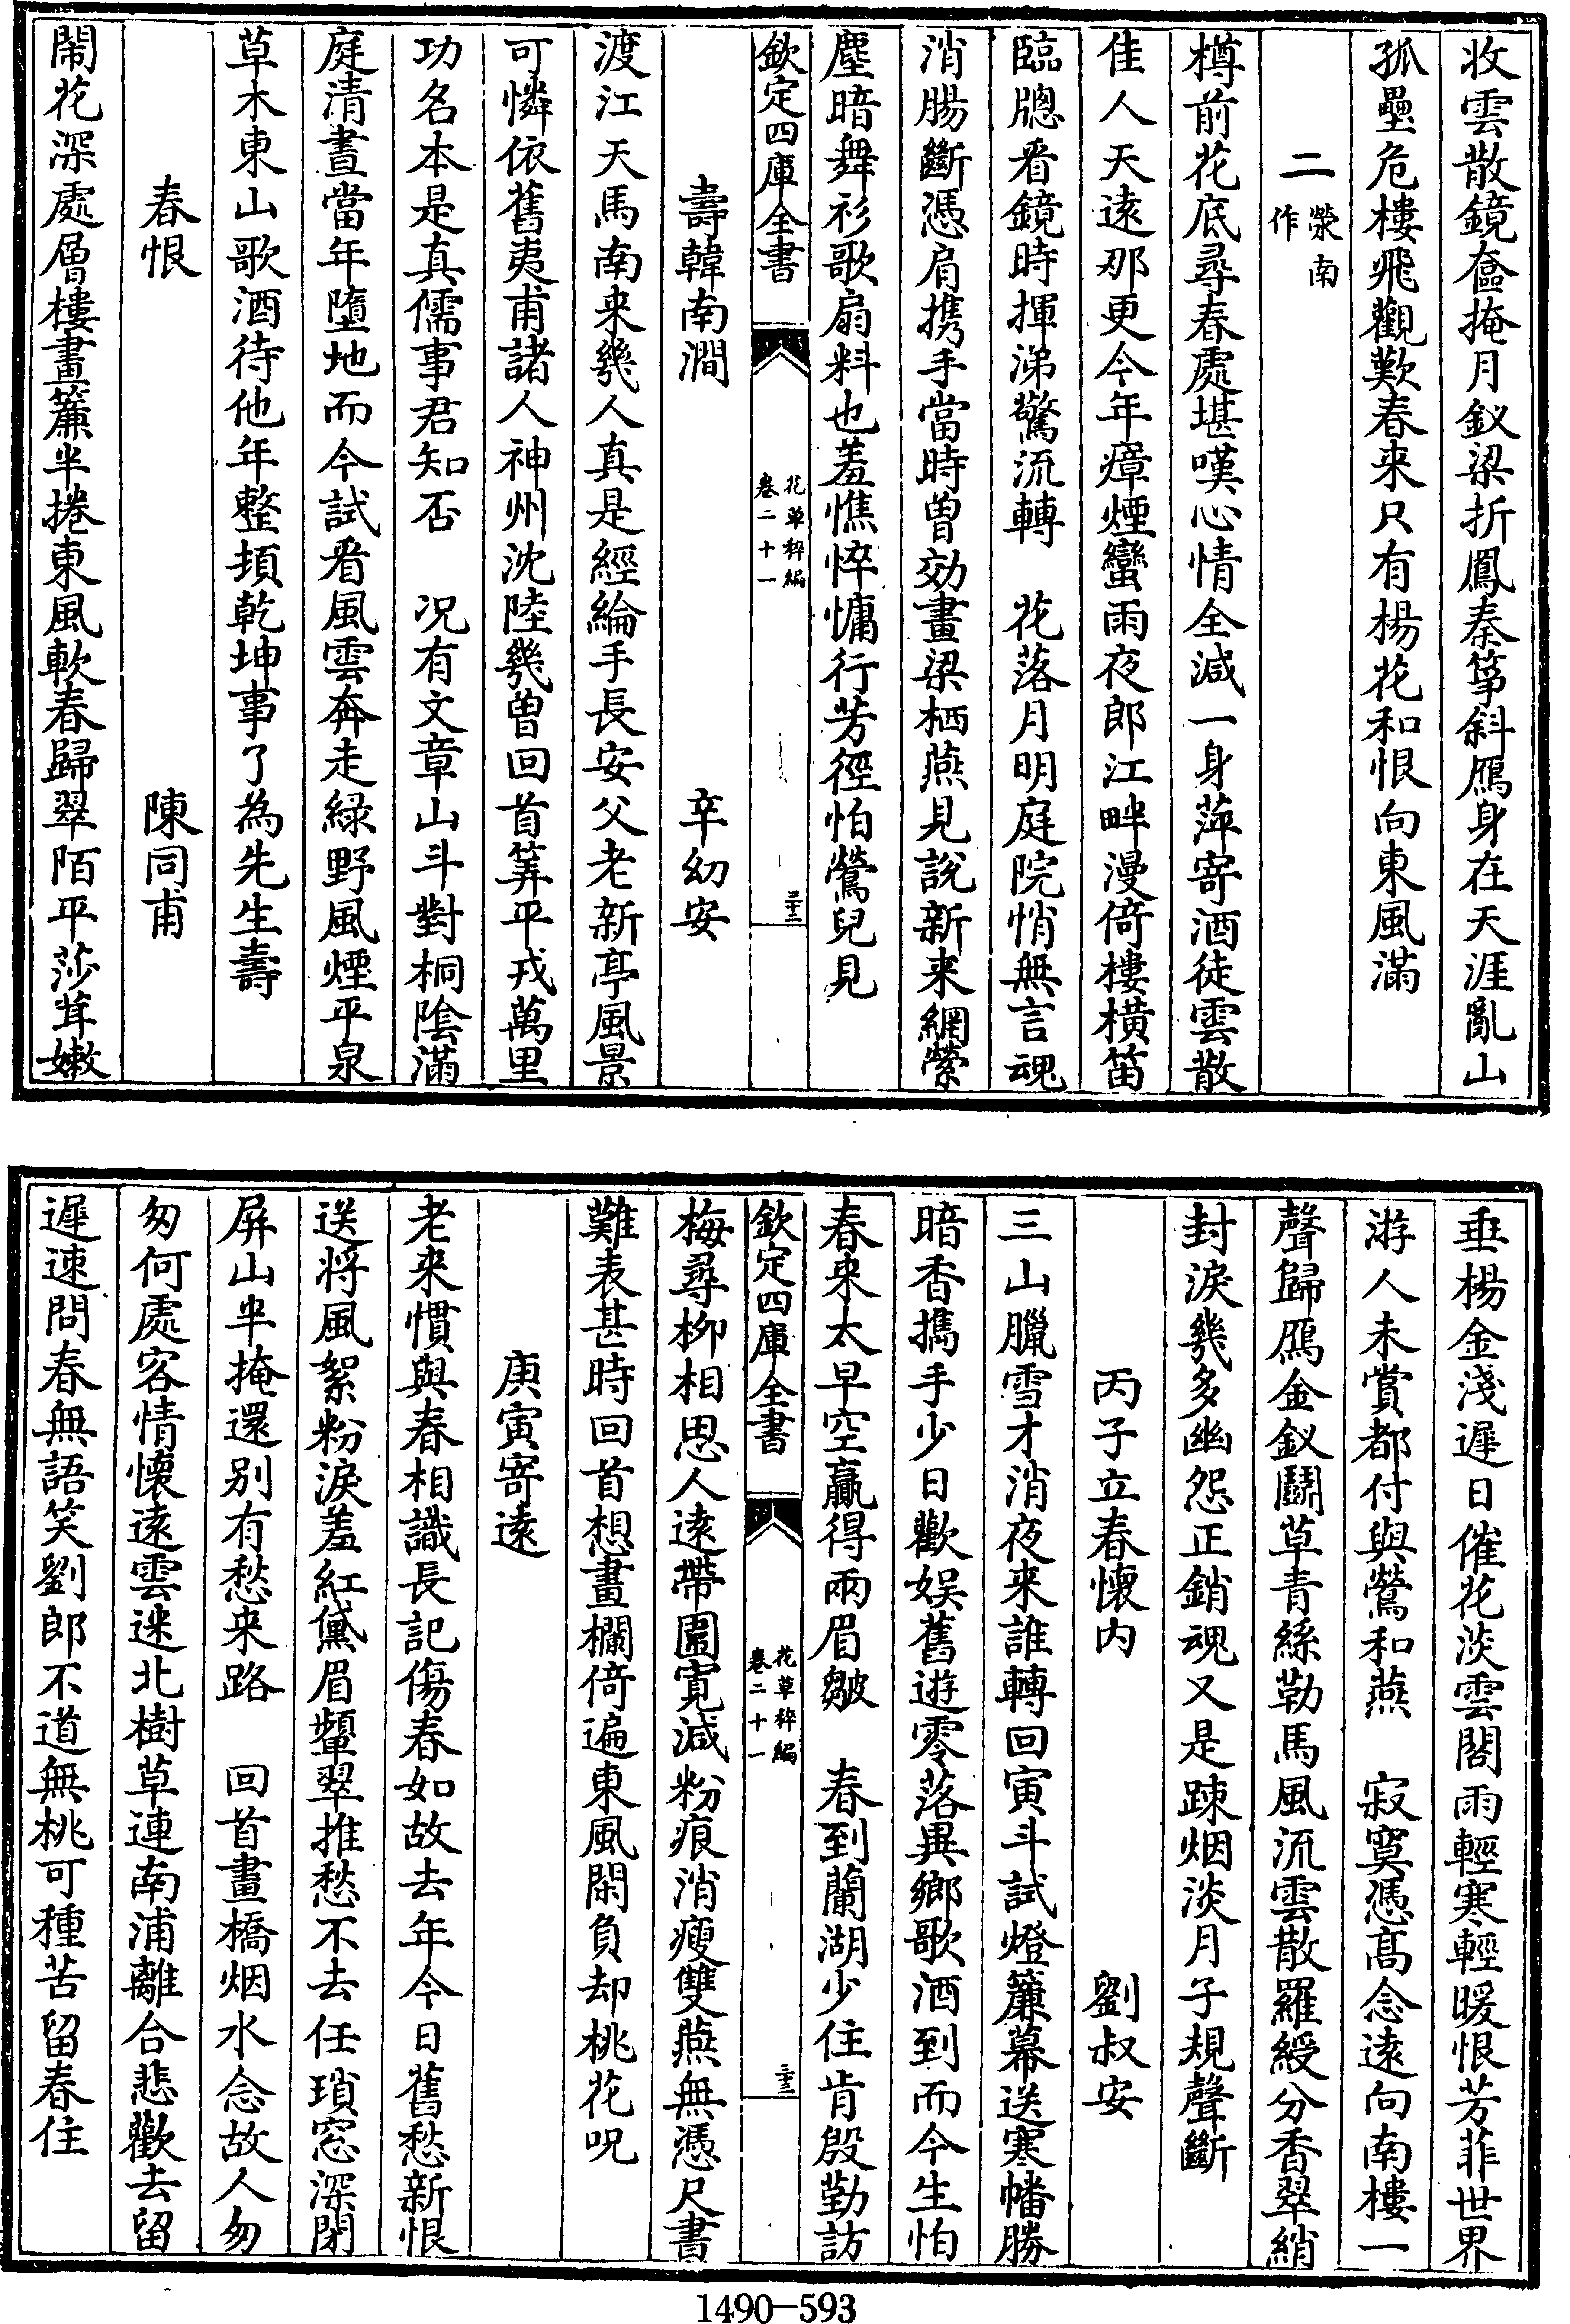 收雲散鏡奩掩月釵梁折鳳秦筝斜鴈身在天涯亂山
孤壘危樓飛觀歎春来只有楊花和恨向東風滿
二 滎南作
樽前花底尋春處堪嘆心情全減一身萍寄酒徒雲散
佳人天遠那更今年瘴煙蠻雨夜郎江畔漫倚樓横笛
臨牎看鏡時揮涕驚流轉　花落月明庭院悄無言魂
消腸斷憑肩携手當時曽効畫梁栖燕見說新来網縈
塵暗舞衫歌扇料也羞憔悴慵行芳徑怕鶯兒見
欽定四庫全書
花草稡編
卷二十一
三十三
壽韓南澗　辛幼安
渡江天馬南来幾人真是經綸手長安父老新亭風景
可憐依舊夷甫諸人神州沈陸幾曽回首筭平戎萬里
功名本是真儒事君知否　况有文章山斗對桐陰滿
庭清晝當年墮地而今試看風雲奔走緑野風煙平泉
草木東山歌酒待他年整頓乾坤事了為先生壽
春恨　陳同甫
閙花深處層樓畫簾半捲東風軟春歸翠陌平莎茸嫩
垂楊金淺遲日催花淡雲閣雨輕寒輕暖恨芳菲世界
游人未賞都付與鶯和燕　寂寞憑髙念遠向南樓一
聲歸鴈金釵鬬草青絲勒馬風流雲散羅綬分香翠綃
封淚幾多幽怨正銷魂又是踈烟淡月子規聲斷
丙子立春懷内　劉叔安
三山臘雪才消夜来誰轉回寅斗試燈簾幕送寒幡勝
暗香攜手少日歡娱舊遊零落異鄉歌酒到而今生怕
春来太早空贏得兩眉皺　春到蘭湖少住肯殷勤訪
欽定四庫全書
花草稡編
卷二十一
三十三
梅尋柳相思人遠帶圍寛減粉痕消瘦雙燕無憑尺書
難表甚時回首想畫欄倚遍東風閑負却桃花呪
庚寅寄遠
老来慣與春相識長記傷春如故去年今日舊愁新恨
送將風絮粉淚羞紅黛眉顰翠推愁不去任瑣窓深閉
屏山半掩還别有愁来路　回首畫橋烟水念故人匆
匆何處客情懐遠雲迷北樹草連南浦離合悲歡去留
遲速問春無語笑劉郎不道無桃可種苦留春住
1490—593